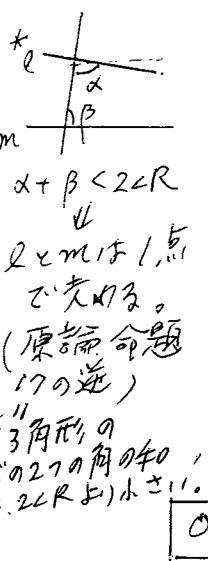 * l
α
β
m
α + β < 2∠R
⇓
lとmは1点
で交わる。
(原論 命題
17の逆)
"
3角形の
の2つの角の和
2∠Rより小さい。